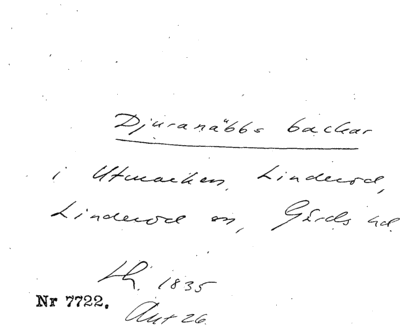 Djuranäbbs backar
i Utmarken, Linderöd,
Linderöd sn, Gärds hd.
Lh. 1835
Nr 7722.
Akt 26.